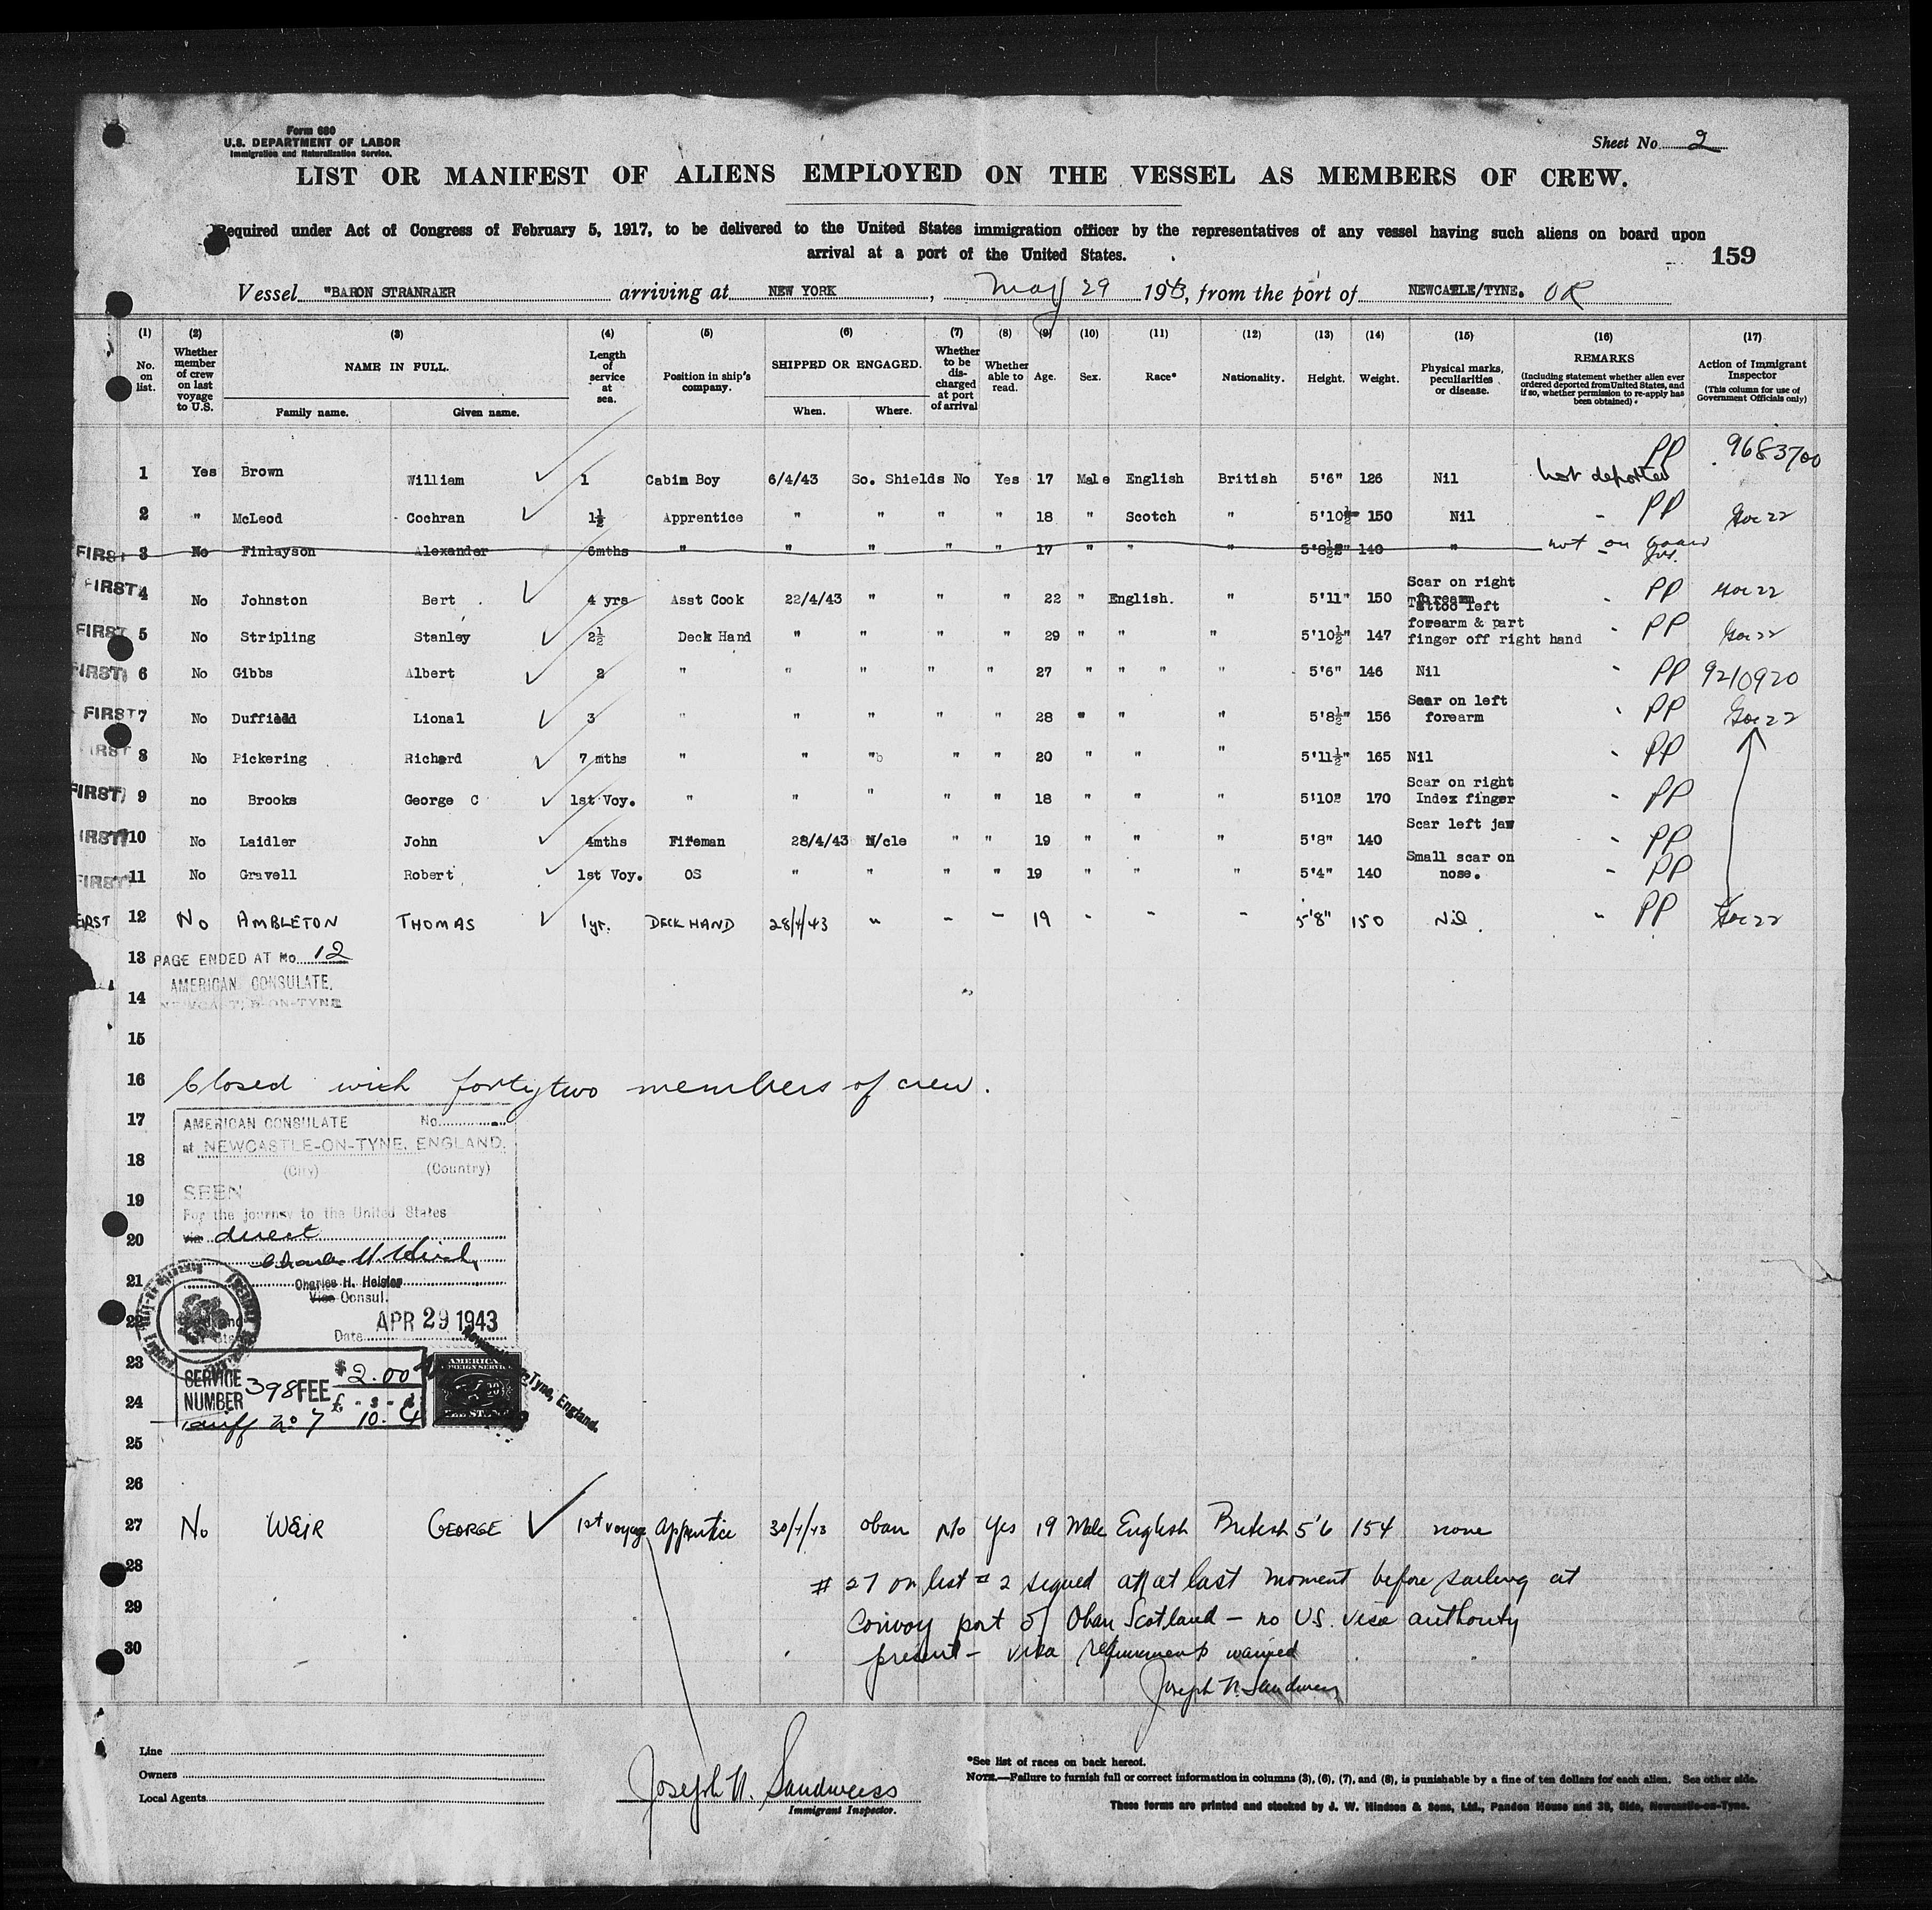 Form 680
U.S. DEPARTMENT OF LABOR
Immigration and Naturalization Service.
Sheet No. 2
LIST OR MANIFEST OF ALIENS EMPLOYED ON THE VESSEL AS MEMBERS OF CREW.
Required under Act of Congress of February 5, 1917, to be delivered to the United States immigration officer by the representatives of any vessel having such aliens on board upon
arrival at a port of the United States.
159
Vessel "BARON STRANRAER arriving at NEW YORK, May 29 1943, from the port of NEWCASTLE/TYNE. OR
(1) (2) (3) (4) (5) (6) (7) (8) (9) (10) (11) (12) (13) (14) (15) (16) (17)
No. on list. Whether member of crew on last voyage to U.S. NAME IN FULL. Family name. Given name. Length of service at sea. Position in ship's company. SHIPPED OR ENGAGED. When. Where. Whether to be discharged at port of arrival Whether able to read. Age. Sex. Race* Nationality. Height. Weight. Physical marks, peculiarities or disease. REMARKS (Including statement whether alien ever ordered deported from United States, and if so, whether permission to re-apply has been obtained). Action of Immigrant Inspector (This column for use of Government Officials only)
1 Yes Brown William 1 Cabin Boy 6/4/43 So. Shields No Yes 17 Male English British 5'6" 126 Nil not deported PP 9683700
2 " McLeod Cochran 1½ Apprentice " " " " 18 " Scotch " 5'10½" 150 Nil - PP
FIRST 3 No Finlayson Alexander 6mths " " " " " 17 " " " 5'8½" 140 " not on board
FIRST 4 No Johnston Bert 4 yrs Asst Cook 22/4/43 " " " 22 " English. " 5'11" 150 Scar on right forearm PP
FIRST 5 No Stripling Stanley 2½ Deck Hand " " " " 29 " " " 5'10½" 147 Tattoo left forearm & part finger off right hand - PP
FIRST 6 No Gibbs Albert 2 " " " " " 27 " " " " 5'6" 146 Nil - PP 9210920
FIRST 7 No Duffield Lional 3 " " " " " 28 " " " 5'8½" 156 Scar on left forearm PP
FIRST 8 No Pickering Richard 7 mths " " " " " 20 " " " 5'11½" 165 Nil PP
FIRST 9 no Brooks George C 1st Voy. " " " " " 18 " " " 5'10" 170 Scar on right Index finger - PP
FIRST 10 No Laidler John 4mths Fireman 28/4/43 N/cle " " 19 " " " 5'8" 140 Scar left jaw - PP
FIRST 11 No Gravell Robert 1st Voy. OS " " " " 19 " " " 5'4" 140 Small scar on nose. - PP
FIRST 12 No AMBLETON THOMAS 1yr. DECK HAND 28/4/43 " - - 19 - - - 5'8" 150 Nil. " PP
13 PAGE ENDED AT No. 12
AMERICAN CONSULATE.
NEWCASTLE-ON-TYNE
14
15
16 Closed with fortytwo members of crew.
17 AMERICAN CONSULATE No.
at NEWCASTLE-ON-TYNE, ENGLAND.
18 (City) (Country)
19 SEEN
For the journey to the United States
20 via direct
21 Charles H. Heisler
Vice Consul.
22 Date APR 29 1943
23 SERVICE NUMBER 398 FEE $2.00
24 Tariff No 7 10-4
AMERICAN FOREIGN SERVICE
Tyne, England.
25
26
27 No WEIR GEORGE 1st voyage Apprentice 30/4/43 Oban No Yes 19 Male English British 5'6 154 none
28 # 27 on list # 2 signed on at last moment before sailing at
29 Convoy port of Oban Scotland - no U.S. visa authority
30 present - visa requirements waived
Joseph N. Sandweiss
Line
Owners
Local Agents
Joseph N. Sandweiss
Immigrant Inspector.
*See list of races on back hereof.
NOTE.—Failure to furnish full or correct information in columns (3), (6), (7), and (8), is punishable by a fine of ten dollars for each alien. See other side.
These forms are printed and stocked by J. W. Hindson & Sons, Ltd., Pandon House and 39, Side, Newcastle-on-Tyne.